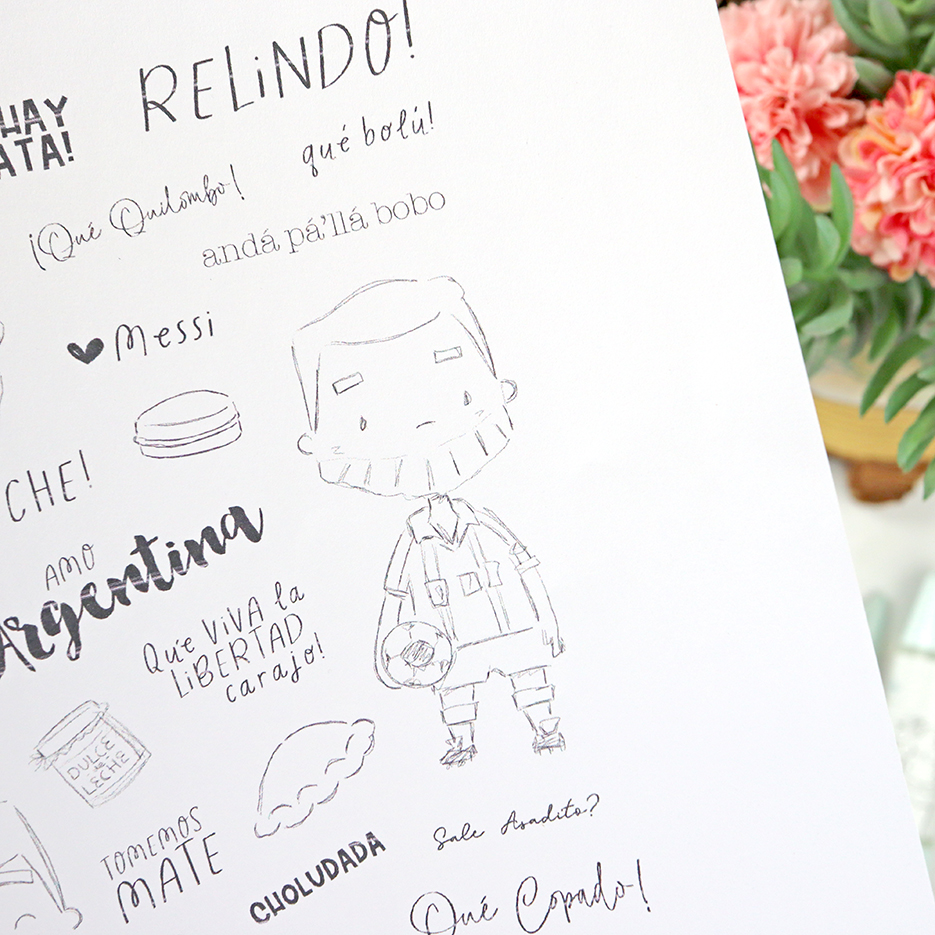 RELiNDO!
HAY
ATA!
qué bolú!
¡Qué Quilombo!
andá pá'llá bobo
Messi
CHE!
AMO
Argentina
Que ViVA la
LiBERTAD
carajo!
DULCE
de
LECHE
TOMEMOS
MATE
CHOLUDADA
Sale Asadito?
Qué Copado!